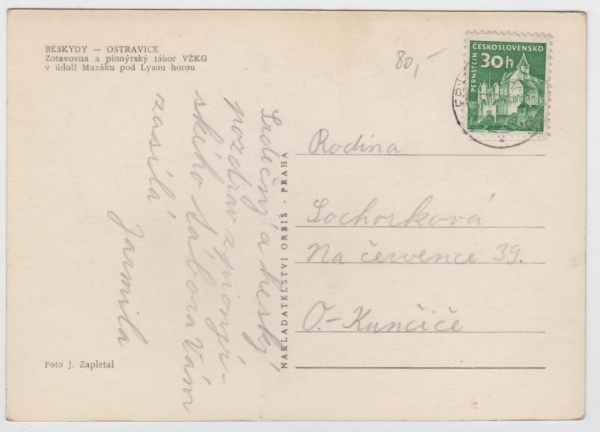 BESKYDY — OSTRAVICE
Zotavovna a pionýrský tábor VŽKG
v údolí Mazáku pod Lysou horou
80,-
ČESKOSLOVENSKO
PERNŠTEJN
30h
Srdečný a hezký
pozdrav z pionýr-
ského tábora Vám
zasílá
Jarmila
NAKLADATELSTVÍ ORBIS - PRAHA
Rodina
Sochorková
Na července 39.
O.-Kunčiče
Foto J. Zapletal